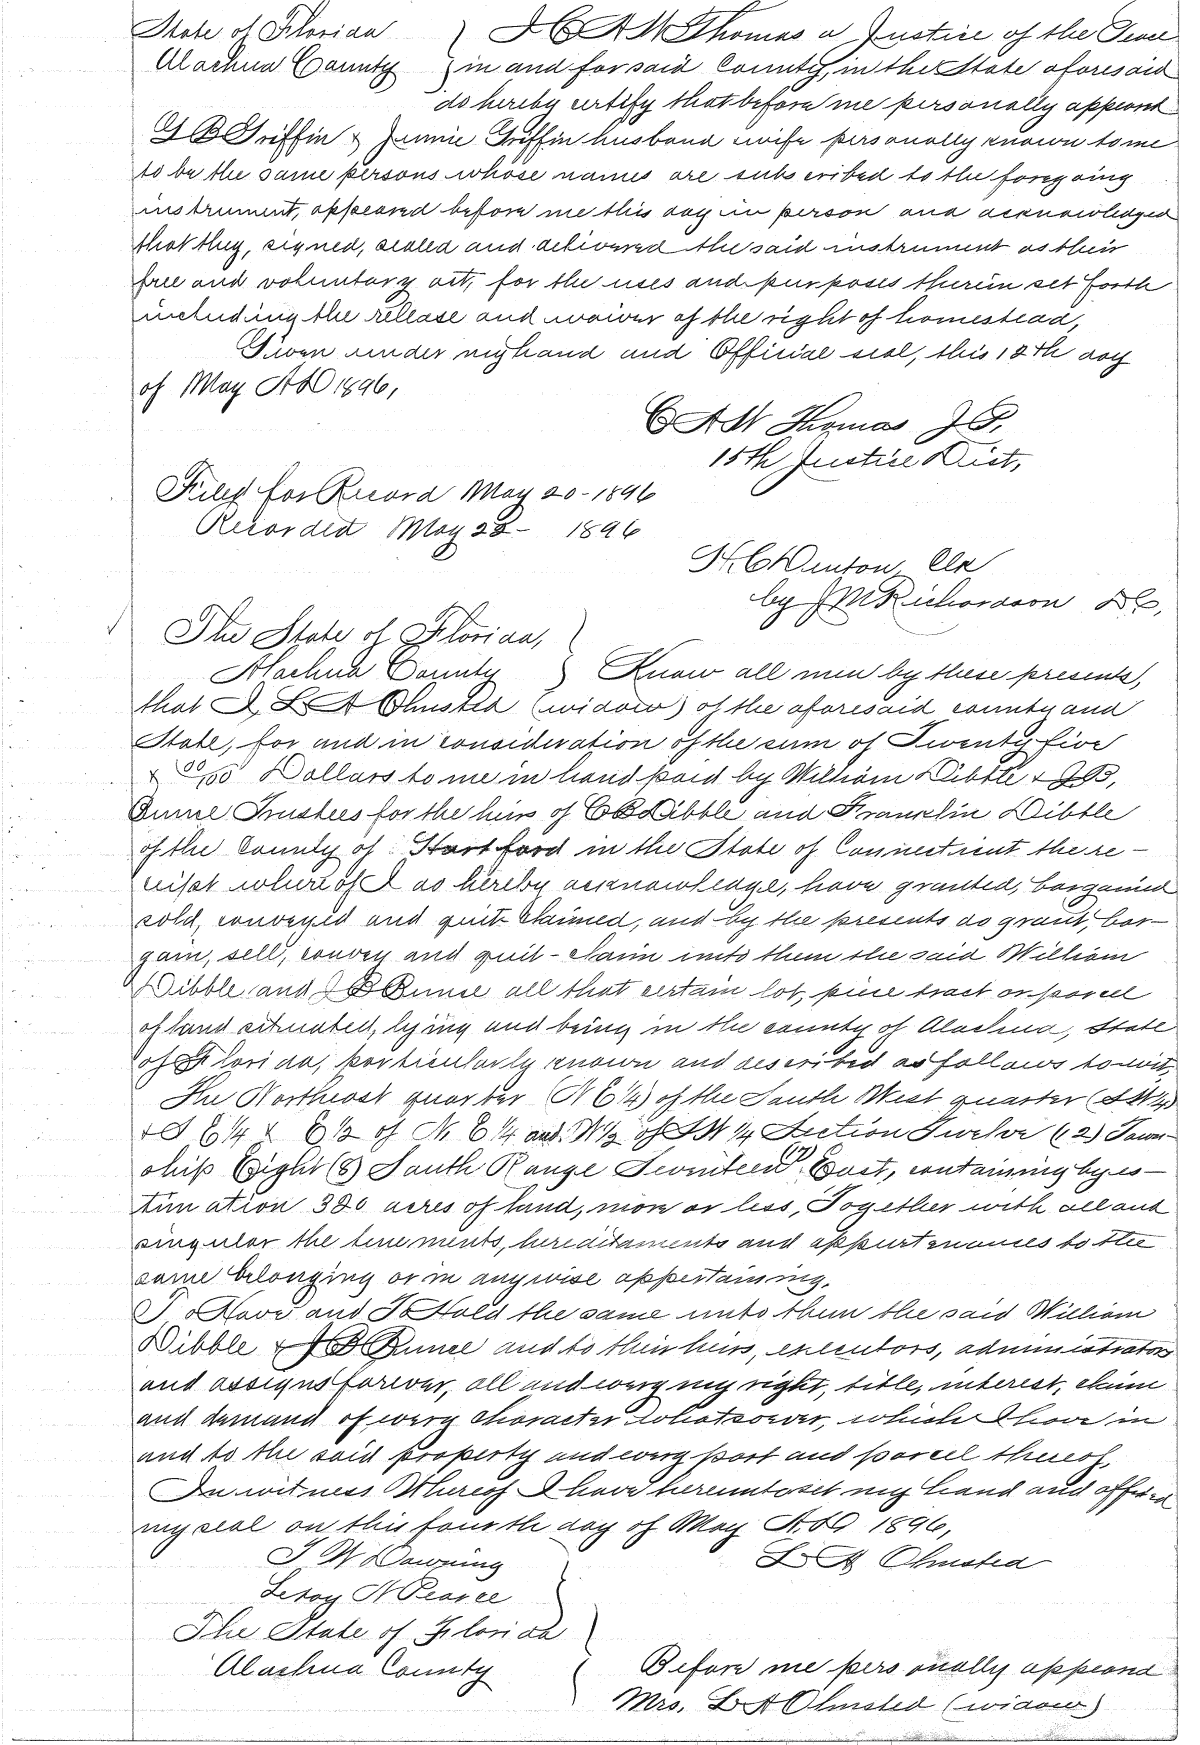 State of Florida } I C A W Thomas a Justice of the Peace
Alachua County } in and for said County, in the State aforesaid
do hereby certify that before me personally appeard
G B Griffin & Jennie Griffin husband wife personally known to me
to be the same persons whose names are subscribed to the foregoing
instrument, appeared before me this day in person and acknowledged
that they, signed, sealed and delivered the said instrument as their
free and voluntary act, for the uses and purposes therein set forth
including the release and waiver of the right of homestead,
Given under my hand and Official seal, this 18th day
of May AD 1896,
C A W Thomas J P.
15th Justice Dist,
Filed for Record May 20 - 1896
Recorded May 22 - 1896
H. C Denton Clk
by J M Richardson D C,
The State of Florida, }
Alachua County } Know all men by these presents,
that I, L A Olmsted (widow) of the aforesaid county and
State, for and in consideration of the sum of Twenty five
& 00/100 Dollars to me in hand paid by William Dibble & J B,
Bunce Trustees for the heirs of C B Dibble and Franklin Dibble
of the County of Hartford in the State of Connecticut the re -
ceipt where of I do hereby acknowledge, have granted, bargained
sold, conveyed and quit claimed, and by the presents do grant, bar-
gain, sell, convey and quit - claim unto them the said William
Dibble and J B Bunce all that certain lot, piece tract or parcel
of land situated, lying and being in the county of Alachua, State
of Florida, particularly known and described as follows to-wit,
The Northeast quarter (N E 1/4) of the South West quarter (S W 1/4)
& S E 1/4 & E 1/2 of N. E 1/4 and W 1/2 of S W 1/4 Section Twelve (12) Town-
ship Eight (8) South Range Seventeen (17) East, containing by es-
timation 380 acres of land, more or less, Together with all and
singular the tenements, hereditaments and appurtenances to the
same belonging or in anywise appertaining.
To Have and To Hold the same unto them the said William
Dibble & J B Bunce and to their heirs, executors, administrators
and assigns forever, all and every my right, title, interest, claim
and demand of every character whatsoever, which I have in
and to the said property and every part and parcel thereof,
In witness Whereof I have hereunto set my hand and affixed
my seal on this fourth day of May A. D 1896,
J W Downing } L A Olmsted
Leroy N Pearce }
The State of Florida }
Alachua County } Before me personally appeard
Mrs, L A Olmsted (widow)